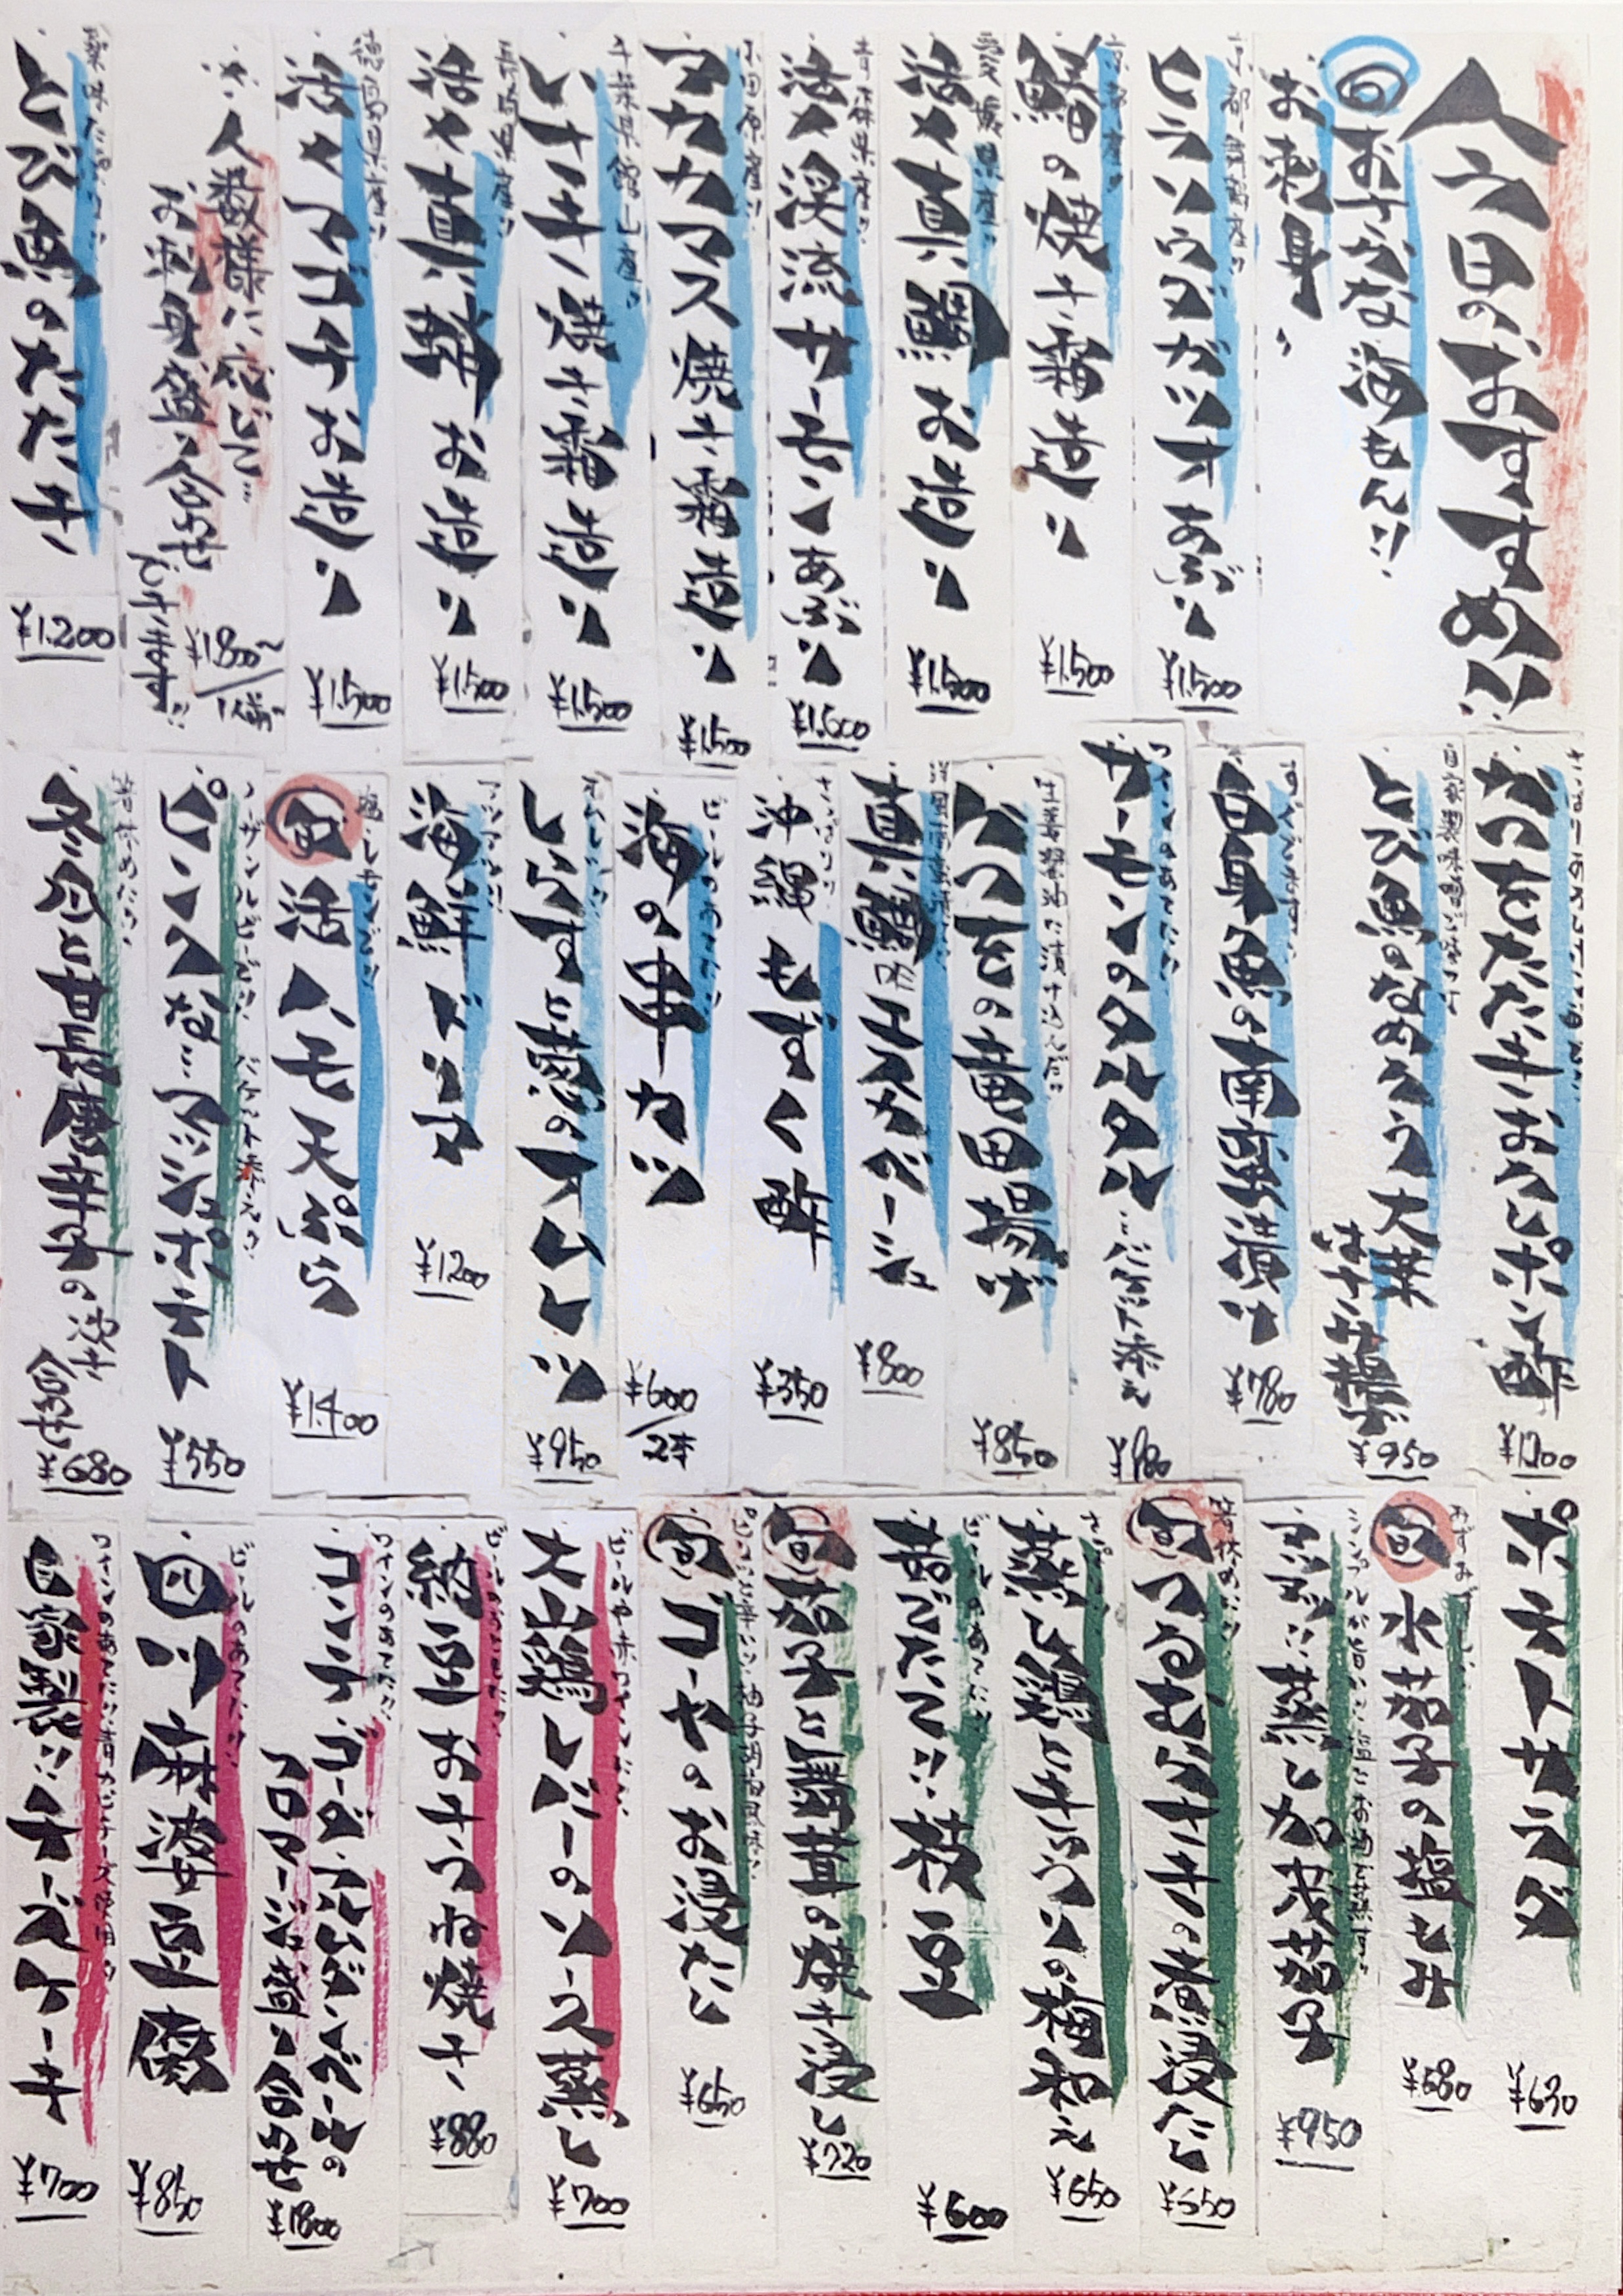 今日のおすすめ!!
旬おすすめな海もん!!
お刺身
京都産!!
ヒラソウダガツオあぶり
¥1,500
京都産!!
鰆の焼き霜造り
¥1,500
愛媛県産!!
活〆真鯛お造り
¥1,500
青森県産!!
活〆渓流サーモンあぶり
¥1,500
小田原産!!
アカカマス焼き霜造り
¥1,500
千葉県館山産!!
イサキ焼き霜造り
¥1,500
長崎県産!!
活〆真鯵お造り
¥1,500
徳島県産!!
活〆マゴチお造り
¥1,500
※人数様に応じて…
お刺身盛り合わせ
できます!!
¥1,800~/1人前
薬味たっぷり!!
とび魚のたたき
¥1,200
かつおたたきおろしポン酢
¥1,200
自家製味噌で味つけ
とび魚のなめろう大葉
はさみ揚げ
¥950
白身魚の南蛮漬け
¥780
ワインのあてに!!
サーモンのタルタル
バケット添え
¥980
生姜醤油に漬け込んだ!!
かつおの竜田揚げ
¥850
真鯛のエスカベーシュ
¥800
さっぱり!!
沖縄もずく酢
¥350
ビールのあてに!!
海の串カツ
¥600/2本
しらすと葱のオムレツ
¥950
アツアツ!!
海鮮ドリア
¥1200
塩・レモンで!!
旬活ハモ天ぷら
¥1,400
バケット添え
ピンクな…マッシュポテト
¥550
箸休めに!!
冬瓜と甘長唐辛子の炊き
合わせ
¥680
ポテトサラダ
¥630
旬水茄子の塩もみ
¥680
シンプルが旨い!!
蒸し加茂茄子
¥950
箸休めに!!
旬つるむらさきの煮浸だし
¥550
さっぱり!!
蒸し鶏ときゅうりの梅和え
¥650
ビールのあてに!!
茹でたて!!枝豆
¥600
旬茄子と舞茸の焼き浸し
¥720
柚子胡椒風味!!
旬ゴーヤのお浸だし
¥650
ビールや赤ワインに!!
大山鶏レバーのソース蒸し
¥700
ビールのあてに!!
納豆おきつね焼き
¥880
ワインのあてに!!
コンテ・ゴーダ・カマンベールの
フロマージュ盛り合わせ
¥1800
ビールのあてに!!
四川麻婆豆腐
¥850
ワインのあてに!!青カビチーズ使用!!
自家製!!チーズケーキ
¥700